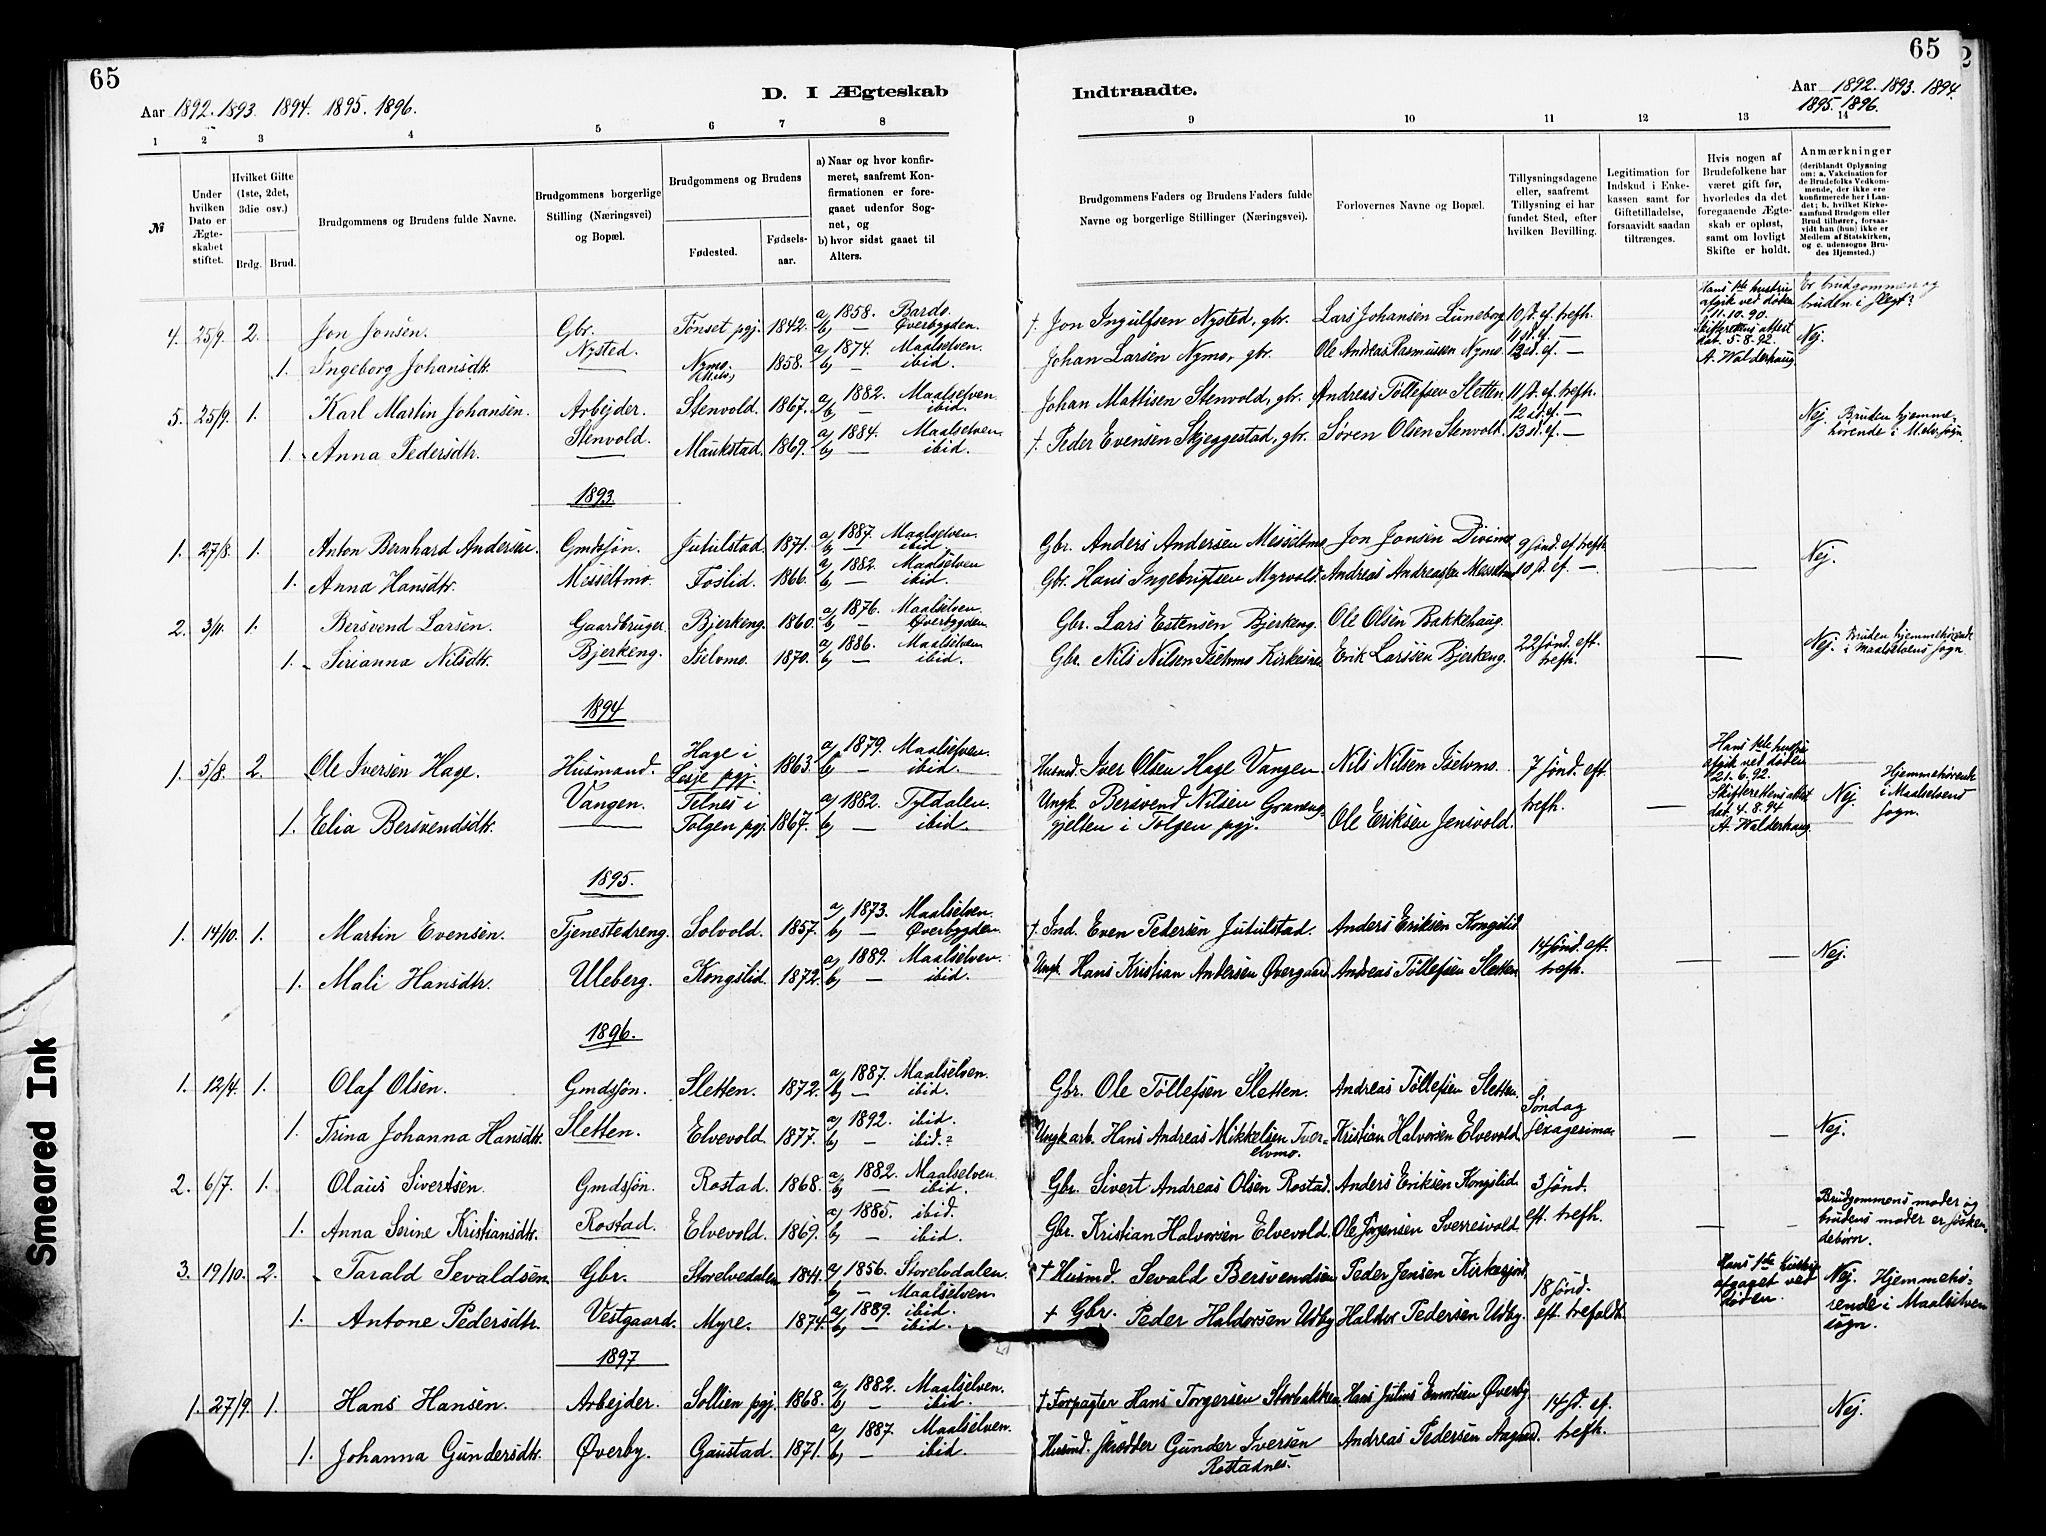 65
65
Aar 1892. 1893. 1894. 1895. 1896.
D. I Ægteskab
Indtraadte.
Aar 1892. 1893. 1894.
1895. 1896.
1 2 3 4 5 6 7 8 9 10 11 12 13 14
№
Under hvilken Dato er Ægteskabet stiftet.
Hvilket Gifte (1ste, 2det, 3die osv.)
Brdg. Brud.
Brudgommens og Brudens fulde Navne.
Brudgommens borgerlige Stilling (Næringsvei) og Bopæl.
Brudgommens og Brudens
Fødested. Fødselsaar.
a) Naar og hvor konfirmeret, saafremt Konfirmationen er foregaaet udenfor Sognet, og
b) hvor sidst gaaet til Alters.
Brudgommens Faders og Brudens Faders fulde Navne og borgerlige Stillinger (Næringsvei).
Forlovernes Navne og Bopæl.
Tillysningsdagene eller, saafremt Tillysning ei har fundet Sted, efter hvilken Bevilling.
Legitimation for Indskud i Enkekassen samt for Giftetilladelse, forsaavidt saadan tiltrænges.
Hvis nogen af Brudefolkene har været gift før, hvorledes da det foregaaende Ægteskab er opløst, samt om lovligt Skifte er holdt.
Anmærkninger
(deriblandt Oplysning om: a. Vakcination for de Brudefolks Vedkommende, der ikke ere konfirmerede her i Landet; b. hvilket Kirkesamfund Brudgom eller Brud tilhører, forsaavidt han (hun) ikke er Medlem af Statskirken, og c. udensogns Brudes Hjemsted.)
4. 25/9. 2. Jon Jonsen. Gbr. Tønset pgj. 1842. a) 1858. Bardo. b) — Øverbygden. † Jon Ingulfsen Nysted, gbr. Lars Johansen Luneborg 10 s. ef. trefh. 11 s. ef. — Hans 1ste hustru afgik ved døden 11.10.90. Skifterettens attest dat. 5.8.92. A. Walderhaug Er brudgommen og bruden i slegt? Nej.
1. Ingeborg Johansdtr. Nysted. Nymo. 1858. a) 1874. Maalselven. b) — ibid. Johan Larsen Nymo, gbr. Ole Andreas Rasmussen Nymo. 12 s. ef. —
5. 25/9. 1. Karl Martin Johansen. Arbejder. Stenvold. 1867. a) 1882. Maalselven. b) — ibid. Johan Mattisen Stenvold, gbr. Andreas Tøllefsen Sletten 11 s. ef. trefh. 12 s. ef. — Nej. Bruden hjemmehørende i M.elv. sogn.
1. Anna Pedersdtr. Stenvold. Maukstad. 1869. a) 1884. Maalselven. b) — ibid. † Peder Evensen Skjeggestad, gbr. Søren Olsen Stenvold. 13 s. ef. —
1893.
1. 27/8. 1. Anton Bernhard Andersen. Gmdssøn. Jutulstad. 1871. a) 1887. Maalselven. b) — ibid. Gbr. Anders Andersen Messeltmo Jon Jonsen Divimo 9 sønd. ef. trefh. Nej.
1. Anna Hansdtr. Messeltmo. Foslid. 1866. a) 1882. Maalselven b) — ibid. Gbr. Hans Ingebrigtsen Myrvold. Andreas Andreassen Messeltmo 10 s. ef. —
2. 3/11. 1. Bersvend Larsen. Gaardbruger Bjerkeng. 1860. a) 1876. Maalselven. b) — Øverbygden. Gbr. Lars Estensen Bjerkeng. Ole Olsen Bakkehaug. 22 sønd. eft. trefh. Nej. Bruden hjemmehørende i Maalselvens sogn
1. Sirianna Nilsdtr. Bjerkeng. Iselvmo. 1870. a) 1886. Maalselven b) — ibid. Gbr. Nils Nilsen Iselvmo Kirkesnes Erik Larssen Bjerkeng.
1894
1. 5/8. 2. Ole Iversen Hage. Husmand. Hage i Lesje pgj. 1863. a) 1879. Maalselven. b) — ibid. Husmd. Iver Olsen Hage Vangen. Nils Nilsen Iselvmo. 7 sønd. eft. trefh. Hans 1ste hustru afgik ved døden 21.6.92. Skifterettens attest dat. 4.8.94 A. Walderhaug. Nej. Hjemmehørende i Maalselvens sogn.
1. Elia Bersvendsdtr. Vangen. Telnes i Tolgen pgj. 1867. a) 1882. Tyldalen. b) — ibid. Ungk. Bersvend Nilsen Graneng gjelten i Tolgen pgj. Ole Eriksen Jensvold.
1895.
1. 14/10. 1. Martin Evensen. Tjenestedreng. Solvold. 1857. a) 1873. Maalselven. b) — Øverbygden. † Ind. Even Pedersen Jutulstad. Anders Eriksen Kongslid. 14 sønd. eft. trefh. Nej.
1. Mali Hansdtr. Uleberg. Kongslid. 1872. a) 1889. Maalselven. b) — ibid. Ungk. Hans Kristian Andersen Øvergaard. Andreas Tøllefsen Sletten
1896.
1. 12/4. 1. Olaf Olsen. Gmdssøn. Sletten. 1872. a) 1887. Maalselven. b) — ibid. Gbr. Ole Tøllefsen Sletten. Andreas Tøllefsen Sletten. Søndag sexagesima Nej.
1. Trina Johanna Hansdtr. Sletten. Elvevold. 1877. a) 1892. ibid. b) — ibid.? Ungk. arb. Hans Andreas Mikkelsen Tverelvmo. Kristian Halvorsen Elvevold.
2. 6/7. 1. Olaus Sivertsen. Gmdssøn. Rostad. 1868. a) 1882. Maalselven b) — ibid. Gbr. Sivert Andreas Olsen Rostad. Anders Eriksen Kongslid. 3 sønd. eft. trefh. Brudgommens moder og brudens moder er søskendebørn.
1. Anna Serine Kristiansdtr. Rostad. Elvevold. 1869. a) 1885. ibid. b) — ibid. Gbr. Kristian Halvorsen Elvevold. Ole Jørgensen Sverresvold.
3. 19/10. 2. Tarald Sevaldsen Gbr. Storelvedalen 1841. a) 1856. Storelvdalen. b) — Maalselven. † Husmd. Sevald Bersvendsen Peder Jensen Kirkesjord 18 sønd. eft. trefoldh. Hans 1ste hustru afgaaet ved døden. Nej. Hjemmehørende i Maalselven sogn.
1. Antone Pedersdtr. Vestgaard. Myre. 1874. a) 1889. ibid. b) — ibid. † Gbr. Peder Haldorsen Udby Haldor Pedersen Udby.
1897
1. 27/9. 1. Hans Hansen. Arbejder. Sollien pgj. 1868. a) 1882. Maalselven. b) — ibid. † Forpagter Hans Torgersen Storbakken. Hans Julius Enortsen Øverby 14 s. ef. trefh. Nej.
1. Johanna Gundersdtr. Øverby. Gaustad. 1871. a) 1887. Maalselven. b) — ibid. Husmd. skredder Gunder Iversen Rostadnes. Andreas Pedersen Aagaard.
Smeared Ink